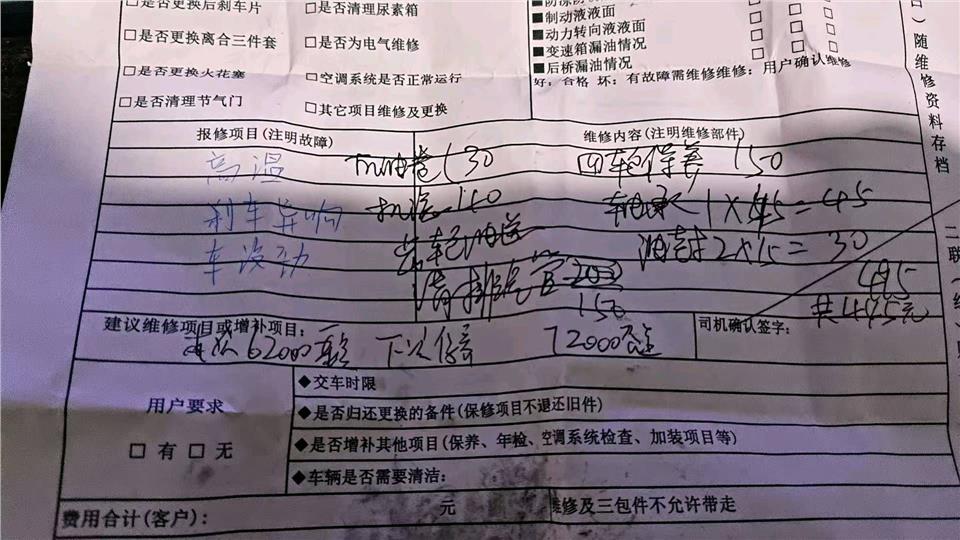 □是否更换后刹车片 □是否清理尿素箱
□是否更换离合三件套 □是否为电气维修
□是否更换火花塞 □空调系统是否正常运行
□是否清理节气门 □其它项目维修及更换
■制动液液面 □ □ □
■动力转向液液面 □ □ □
■变速箱漏油情况 □ □ □
■后桥漏油情况 □ □ □
好：合格 坏：有故障需维修维修：用户确认维修
）随维修资料存档
二联
报修项目(注明故障) 维修内容(注明维修部件)
高温 130 四轮保养 150
刹车异响 140 轴承 1×45=45
车没劲 油封2×15=30
清排气管
150
495
共495元
建议维修项目或增补项目： 司机确认签字：
62000 下次保养 72000
用户要求
□ 有 □ 无
◆交车时限
◆是否归还更换的备件(保修项目不退还旧件)
◆是否增补其他项目(保养、年检、空调系统检查、加装项目等)
◆车辆是否需要清洁：
费用合计(客户)： 元 维修及三包件不允许带走